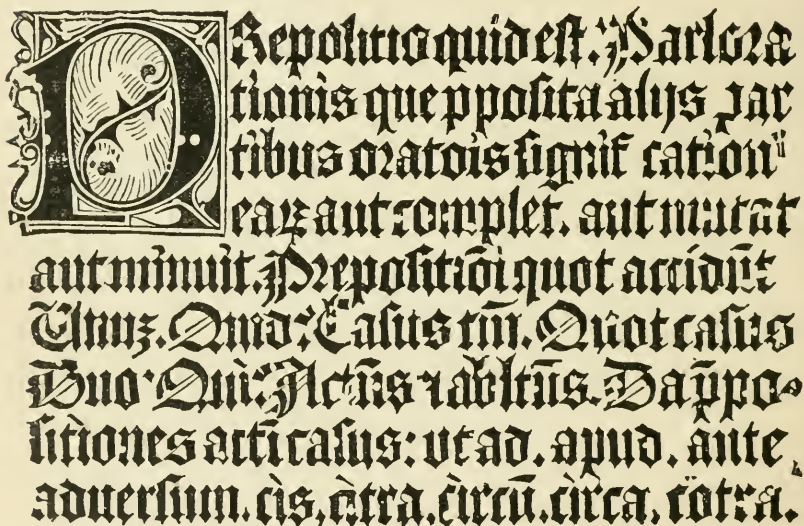 PRepositio quid est. Pars ora
tionis que ꝓposita alijs par
tibus oratōis signification̄
eaꝝ aut complet. aut mutat
aut minuit. Prepositiōi quot accidūt
Unuꝫ. Quid? Casus tm̄. Quot casus
Duo Qui? Actūs ⁊ abltūs. Da p̄po-
sitiones acti casus: vt ad. apud. ante
aduersum. cis. citra. circū. circa. cōtra.